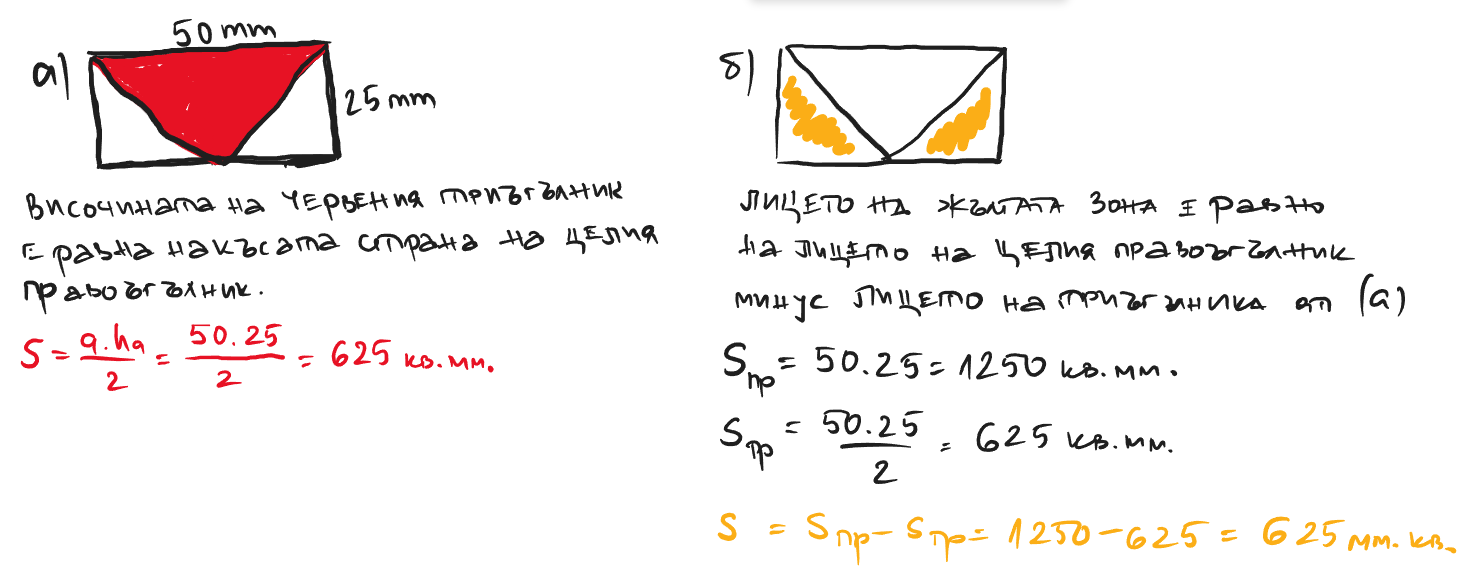 а)
50 mm
25 mm
Височината на червения триъгълник
е равна на късата страна на целия
правоъгълник.
S = a.ha/2 = 50.25/2 = 625 кв.мм.
б)
Лицето на жълтата зона е равно
на лицето на целия правоъгълник
минус лицето на триъгъника от (а)
Sпр = 50.25 = 1250 кв.мм.
Sтр = 50.25/2 = 625 кв.мм.
S = Sпр - Sтр = 1250 - 625 = 625 мм.кв.